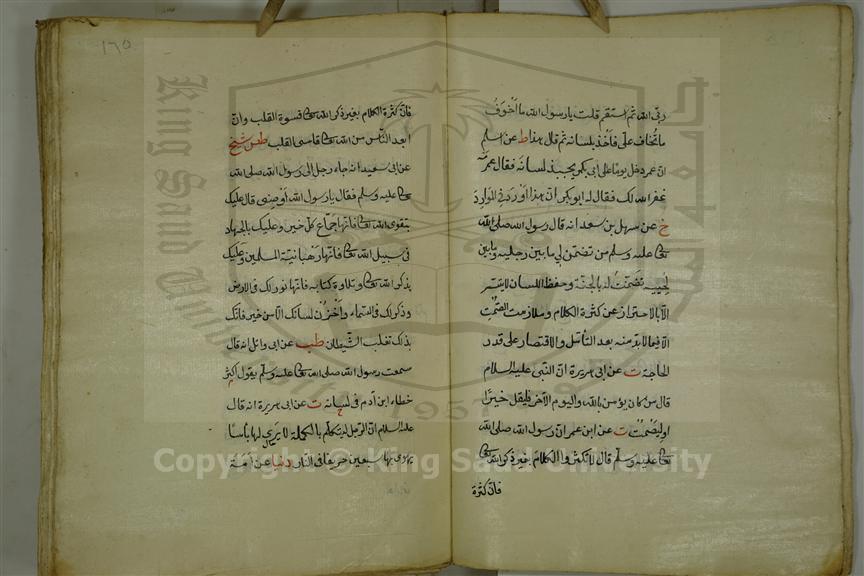 ربى الله ثم استقم قلت يا رسول الله ما أخوف
ما تخاف على فأخذ بلسانه ثم قال هذا ط عن اسلم
ان عمر دخل يوما على ابى بكر يجبذ لسانه فقال عمر مه
غفر الله لك فقال له ابو بكر ان هذا اوردنى الموارد
خ عن سهل بن سعد انه قال رسول الله صلى الله
تعا عليه وسلم من تضمن لى ما بين رجليه وما بين
لحييه تضمنت له بالجنة وحفظ اللسان لا يتيسر
الا بالاحتراز عن كثرة الكلام وملازمت الصمت
الا فيما لا بد منه بعد التأمل والاقتصار على قدر
الحاجة ت عن ابى هريرة ان النبى عليه السلام
قال من كان يؤمن بالله واليوم الآخر فليقل خيرا
او ليصمت ت عن ابن عمر ان رسول الله صلى الله
تعا عليه وسلم قال لا تكثروا الكلام بغير ذكر الله تعا
فان كثرة
١٦٥
فان كثرة الكلام بغير ذكر الله تعا قسوة القلب وان
ابعد الناس من الله تعا قاسى القلب طص شيخ
عن ابى سعيد انه جاء رجل الى رسول الله صلى الله
تعا عليه وسلم فقال يا رسول الله أوصنى قال عليك
بتقوى الله تعا فانها جماع كل خير وعليك بالجهاد
فى سبيل الله تعا فانها رهبانية المسلمين وعليك
بذكر الله تعا وتلاوة كتابه فانها نور لك فى الارض
وذكر لك فى السماء واخزن لسانك الا من خير فانك
بذلك تغلب الشيطان طب عن ابى وائل انه قال
سمعت رسول الله صلى الله تعا عليه وسلم يقول اكثر
خطاء ابن آدم فى لسانه ت عن ابى هريرة انه قال
عليه السلام ان الرجل ليتكلم بالكلمة لا يرى لها بأسا
يهوى بها سبعين خريفا فى النار دنيا عن امة
King Saud University
جامعة الملك سعود
1957
Copyright © King Saud University